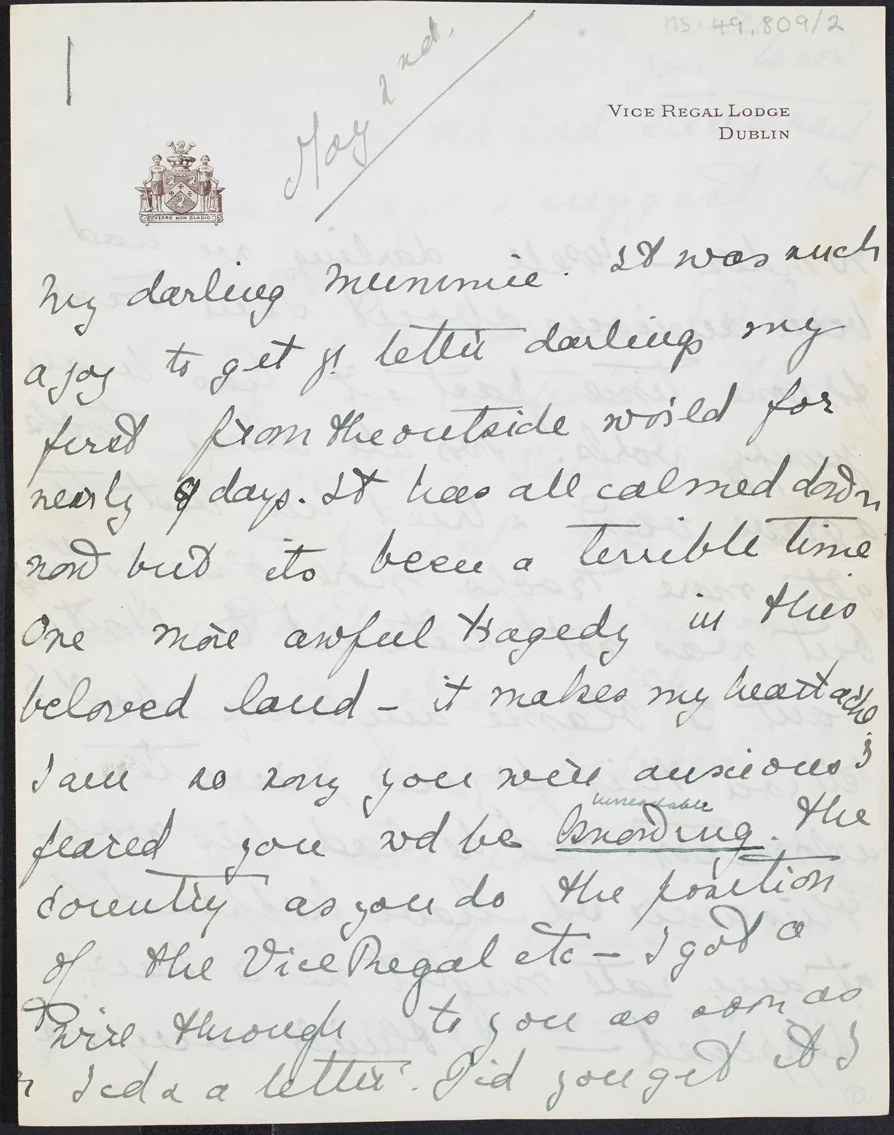 MS 49,809/2
May 2nd.
VICE REGAL LODGE
DUBLIN
FERRO NON GLADIO
My darling Mummie. It was such
a joy to get yr letter darlings my
first from the outside world for
nearly 9 days. It has all calmed down
now but its been a terrible time
One more awful tragedy in this
beloved land – it makes my heart ache
I am so sorry you were anxious I
feared you wd be
unreadable
knowing. the
country as you do the position
of the Vice Regal etc – I got a
wire through to you as soon as
I cd & a letter. Did you get it I